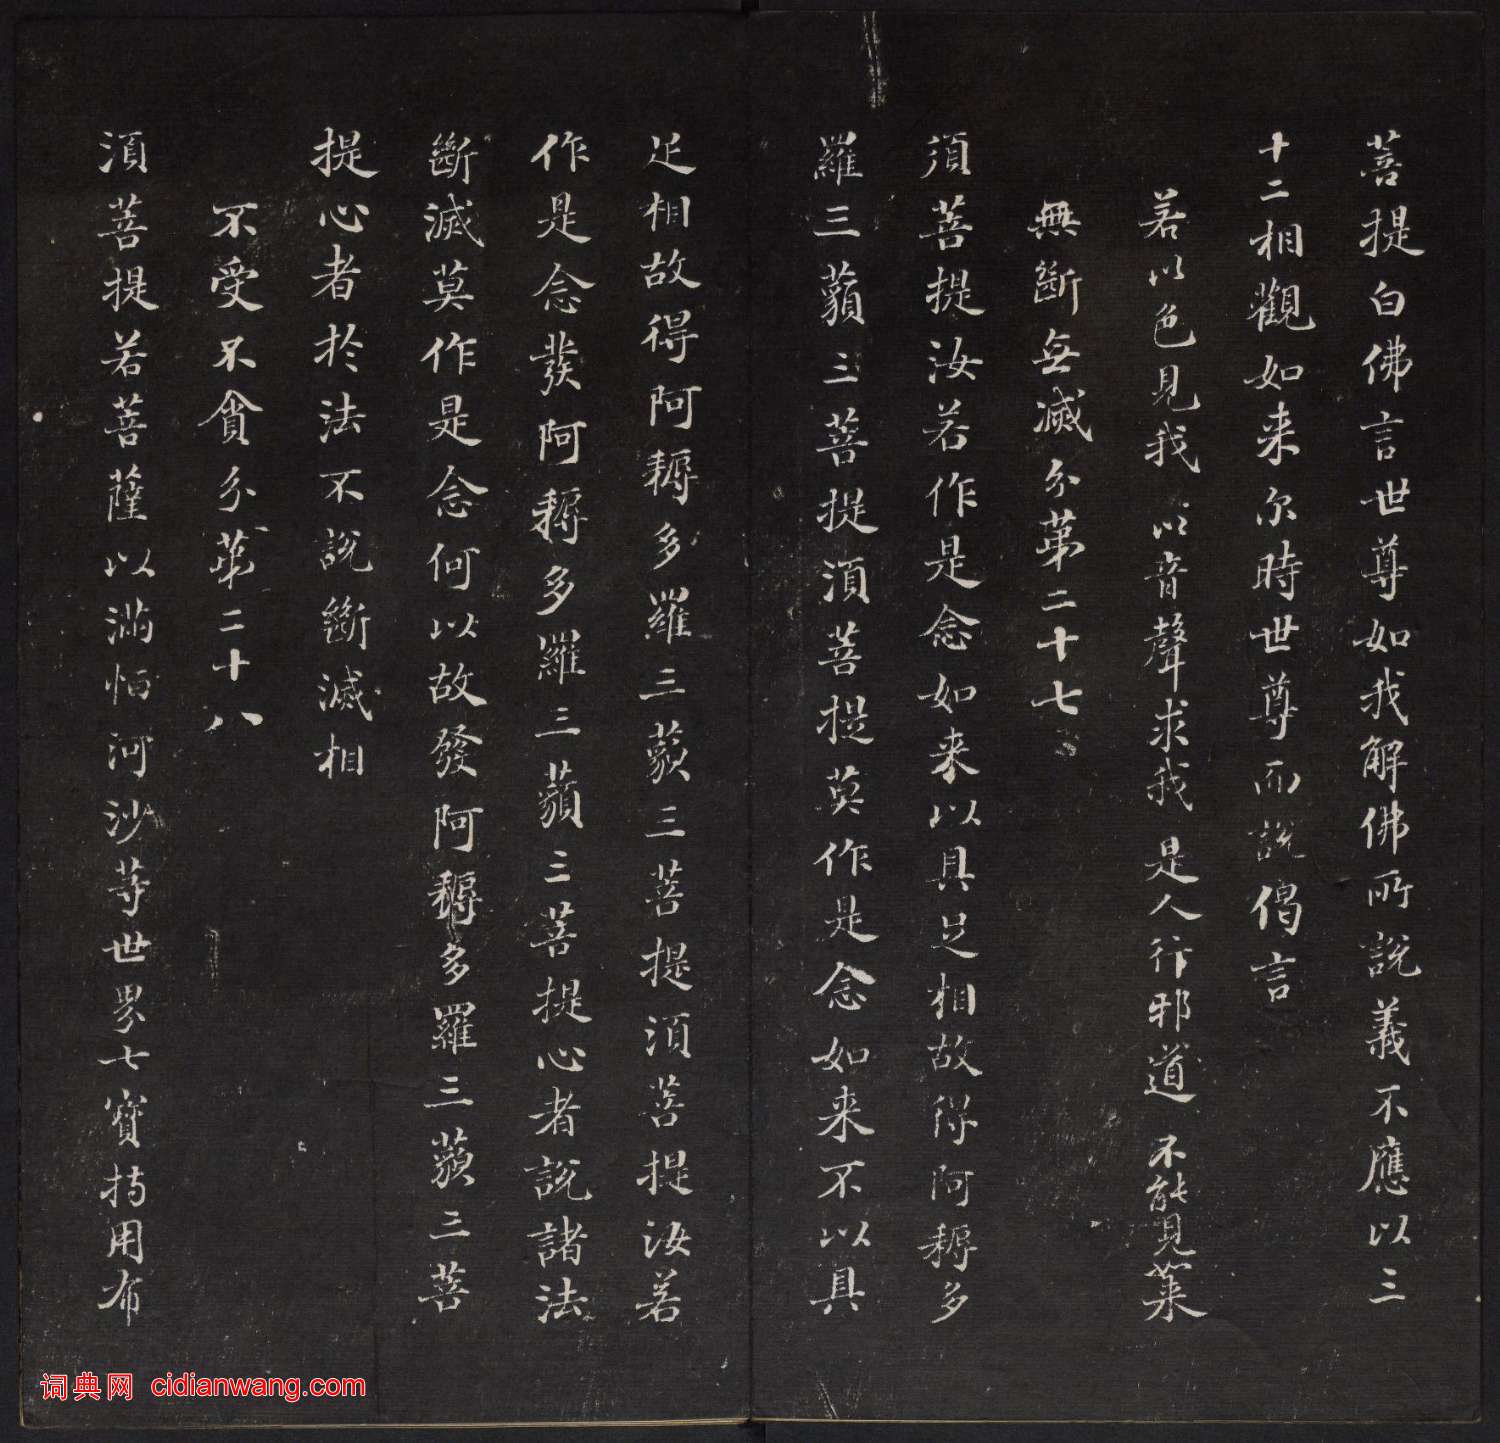 菩提白佛言世尊如我解佛所說義不應以三
十二相觀如来尔時世尊而說偈言
若以色見我以音聲求我是人行邪道不能見如来
無斷無滅分第二十七
須菩提汝若作是念如来以具足相故得阿耨多
羅三藐三菩提須菩提莫作是念如来不以具
足相故得阿耨多羅三藐三菩提須菩提汝若
作是念發阿耨多羅三藐三菩提心者說諸法
斷滅莫作是念何以故發阿耨多羅三藐三菩
提心者於法不說斷滅相
不受不貪分第二十八
須菩提若菩薩以滿恒河沙等世界七寶持用布
词典网 cidianwang.com